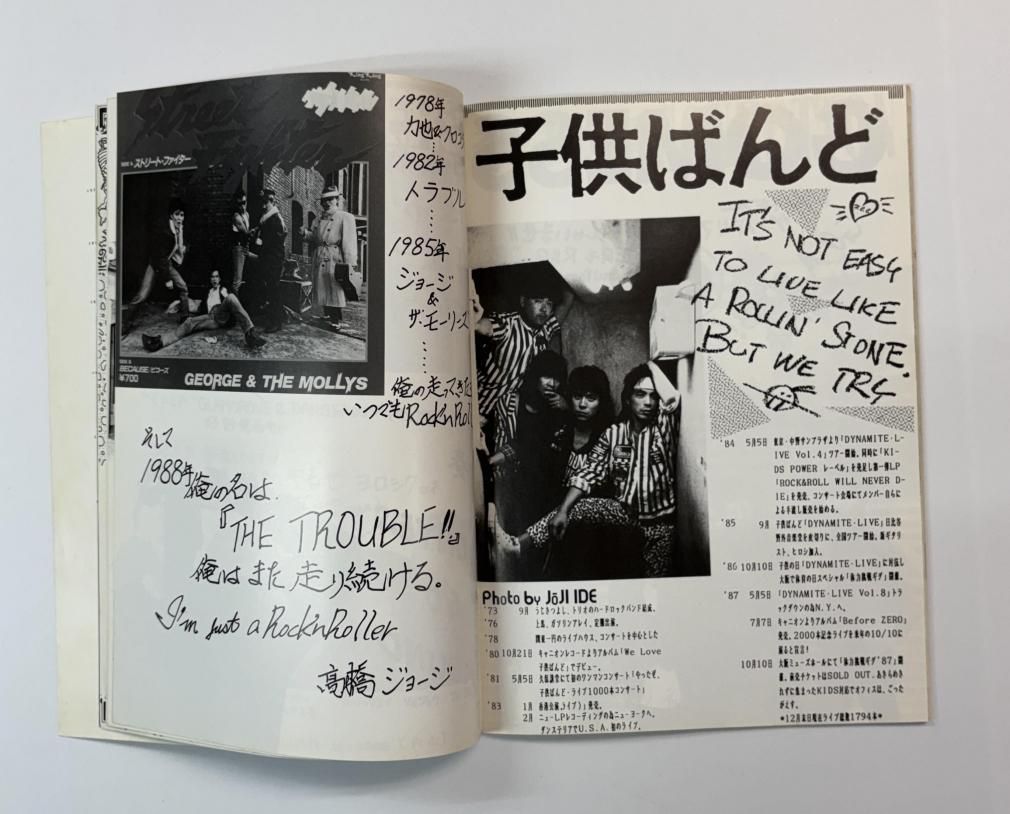 Street
Fighter
SIDE A ストリート・ファイター
SIDE B
BECAUSE/ビコーズ
¥700
GEORGE & THE MOLLYS
1978年
1982年
トラブル
1985年
ジョージ
&
ザ・モーリーズ
俺の走ってきた
いつでもRock'n Roll
そして
1988年俺の名は、
『THE TROUBLE!!』
俺はまた走り続ける。
I'm just a Rock'n Roller
高橋ジョージ
子供ばんど
IT'S NOT EASY
TO LIVE LIKE
A ROLLIN' STONE.
BUT WE TRY
Photo by JōJI IDE
'73 9月 うじきつよし、トリオのハードロックバンド結成。
'76 上馬、ガソリンアレイ、定期出演。
'78 関東一円のライブハウス、コンサートを中心とした
'80 10月21日 キャニオンレコードよりアルバム「We Love
子供ばんど」でデビュー。
'81 5月5日 久保講堂にて初のワンマンコンサート「やったぜ、
子供ばんど・ライブ1000本コンサート」
'83 1月 香港公演（ライブ）」発売。
2月 ニューLPレコーディングの為ニューヨークへ。
ダンステリアでU.S.A.初のライブ。
'84 5月5日 東京・中野サンプラザより「DYNAMITE・L-
IVE Vol.4」ツアー開始。同時に「KI-
DS POWER レーベル」を発足し第一弾LP
「ROCK&ROLL WILL NEVER D-
IE」を発売、コンサート会場にてメンバー自らに
よる手渡し販売を始める。
'85 9月 子供ばんど「DYNAMITE・LIVE」日比谷
野外音楽堂を皮切りに、全国ツアー開始。新ギタリ
スト、ヒロシ加入。
'86 10月10日 子供の日「DYNAMITE・LIVE」に対抗し
大阪で体育の日スペシャル「体力挑戦ギグ」開催。
'87 5月5日 「DYNAMITE・LIVE Vol.8」トラ
ックダウンの為N.Y.へ。
7月7日 キャニオンよりアルバム「Before ZERO」
発売。2000本記念ライブを来年の10/10に
派ると宣言！
10月10日 大阪ミューズホールにて「体力挑戦ギグ'87」開
催。前売チケットはSOLD OUT。あきらめき
れずに集まったKIDS対応でオフィスは、ごった
がえす。
*12月末日現在ライブ総数1794本*